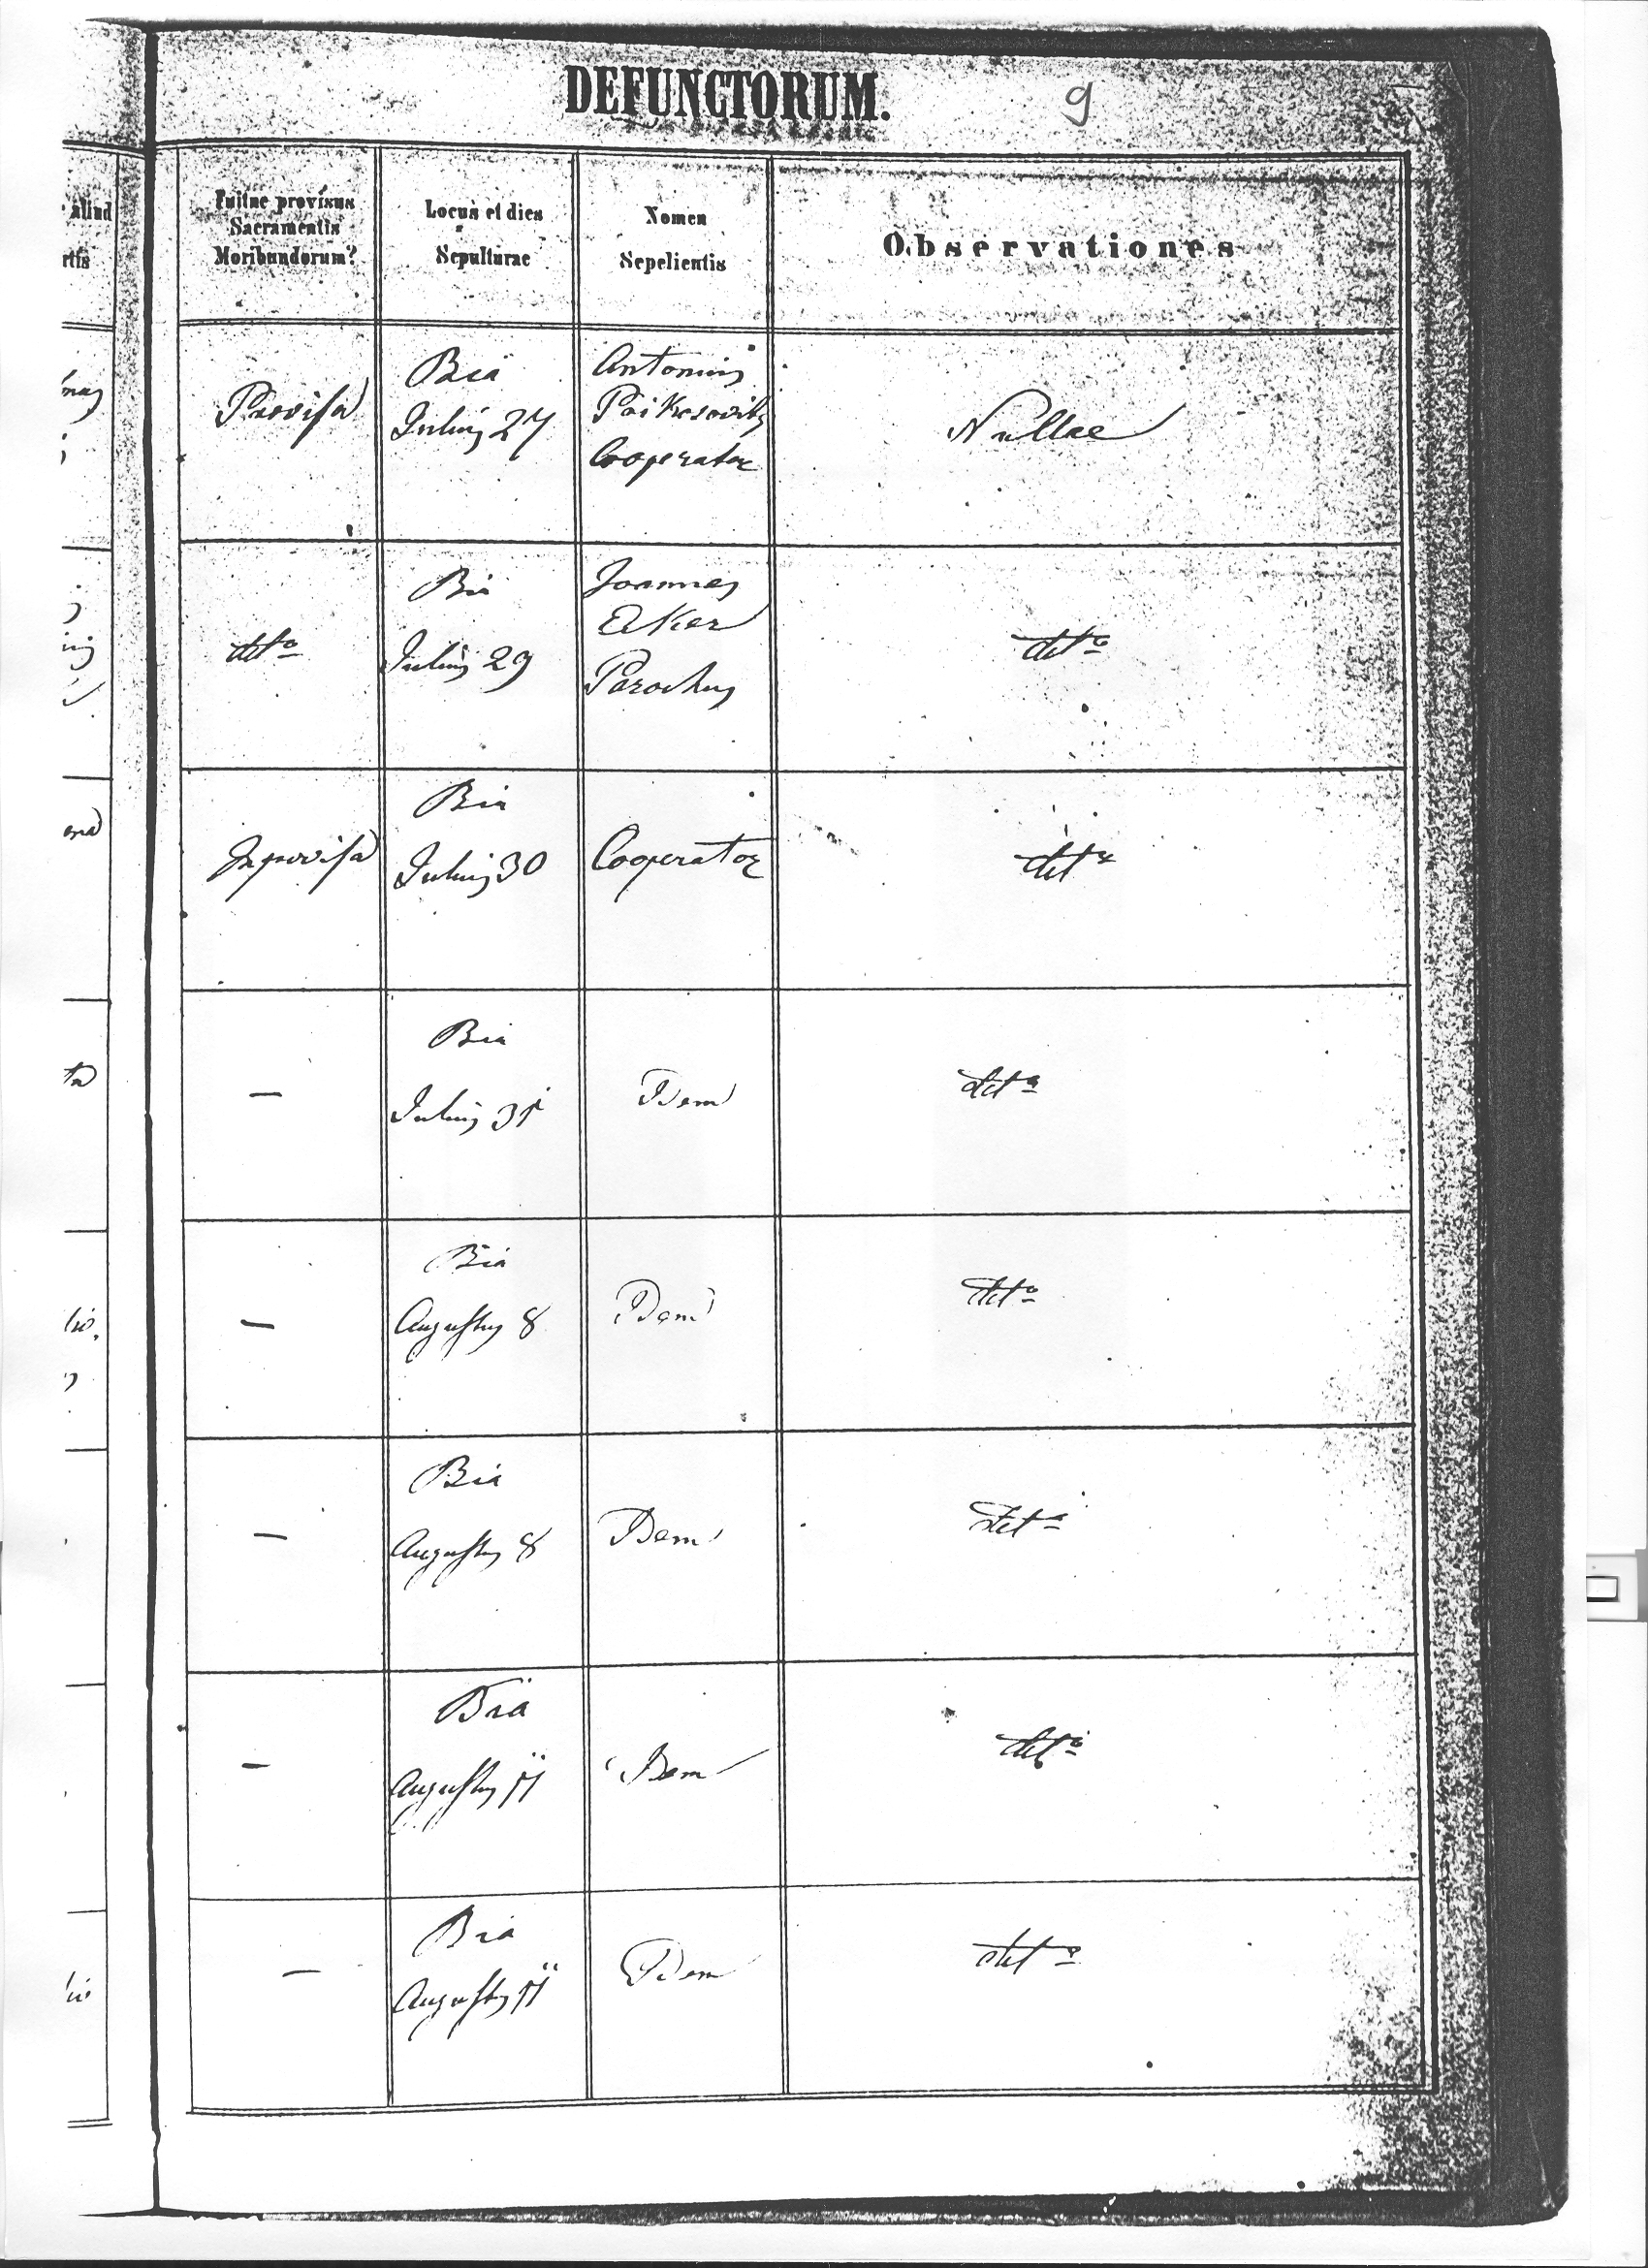 DEFUNCTORUM. 9
Fuitne provisus
Sacramentis
Moribundorum?
Locus et dies
Sepulturae
Nomen
Sepelientis
Observationes
Provisa
Bia
Julius 27
Antonius
Cooperator
Nullae
detto
Bia
Julius 29
Joannes
Eker
Parochus
detto
Improvisa
Bia
Julius 30
Cooperator
detto
—
Bia
Julius 31
Idem
detto
—
Bia
Augustus 8
Idem
detto
—
Bia
Augustus 8
Idem
detto
—
Bia
Augustus 11
Idem
detto
—
Bia
Augustus 11
Idem
detto